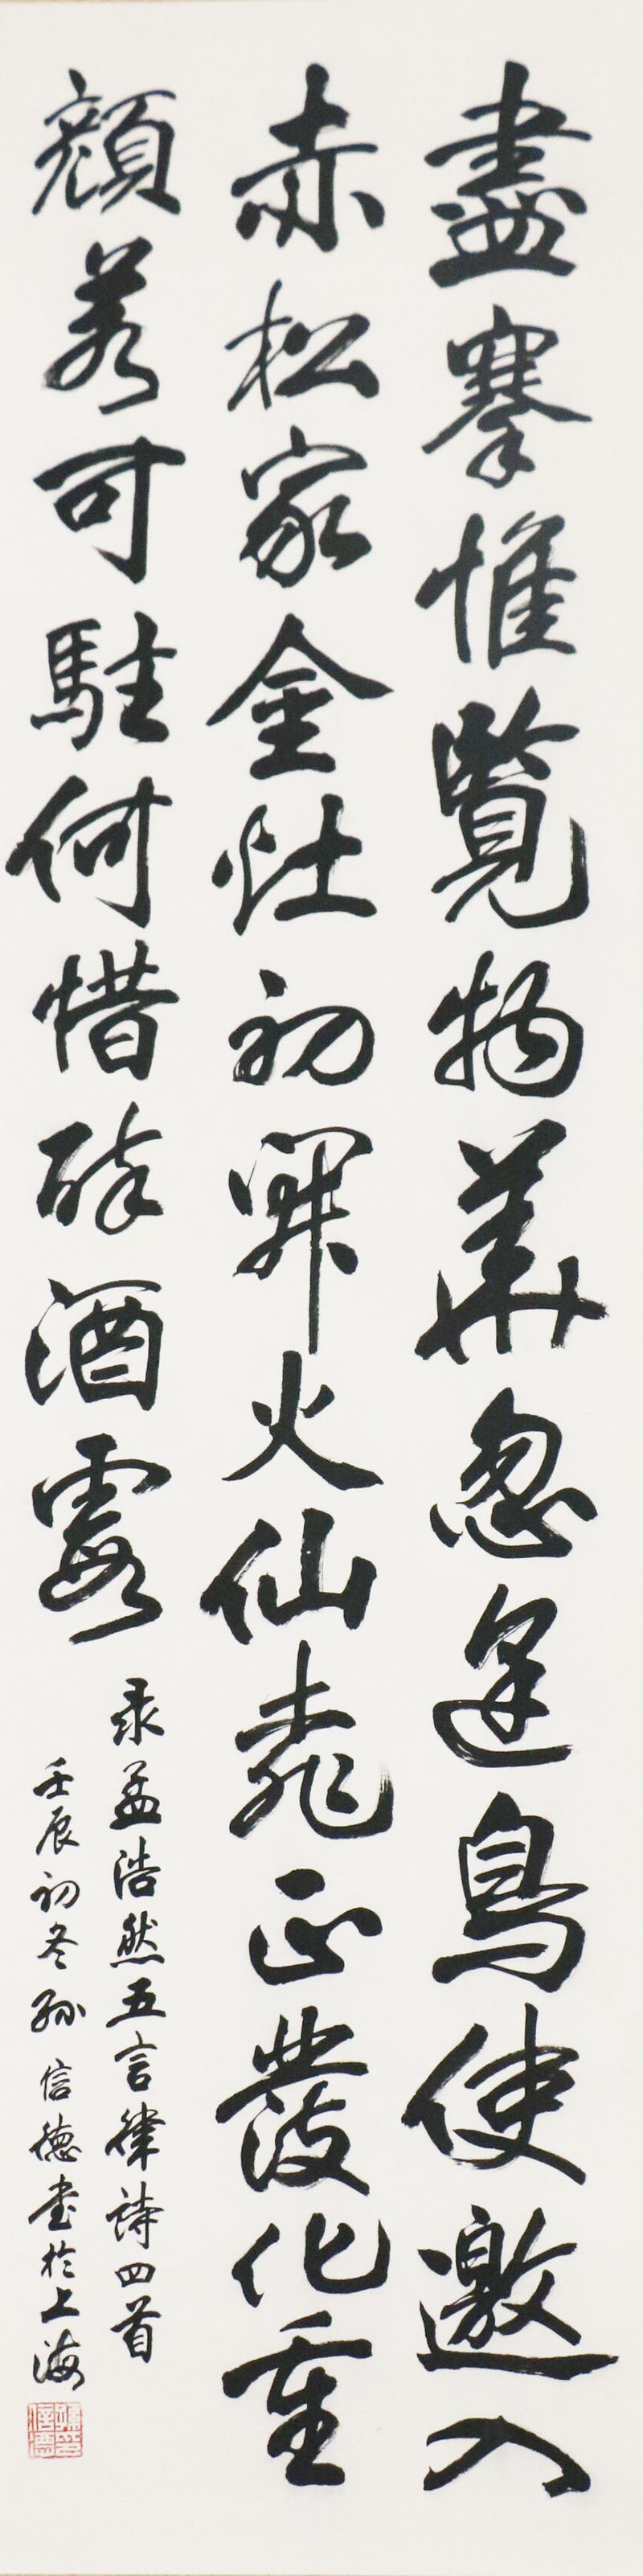 盡搴惟覽物華忽逢鳥使邀入
赤松家金灶初開火仙桃正發化重
顏若可駐何惜醉酒霞
录孟浩然五言律詩四首
壬辰初冬孫信德書於上海